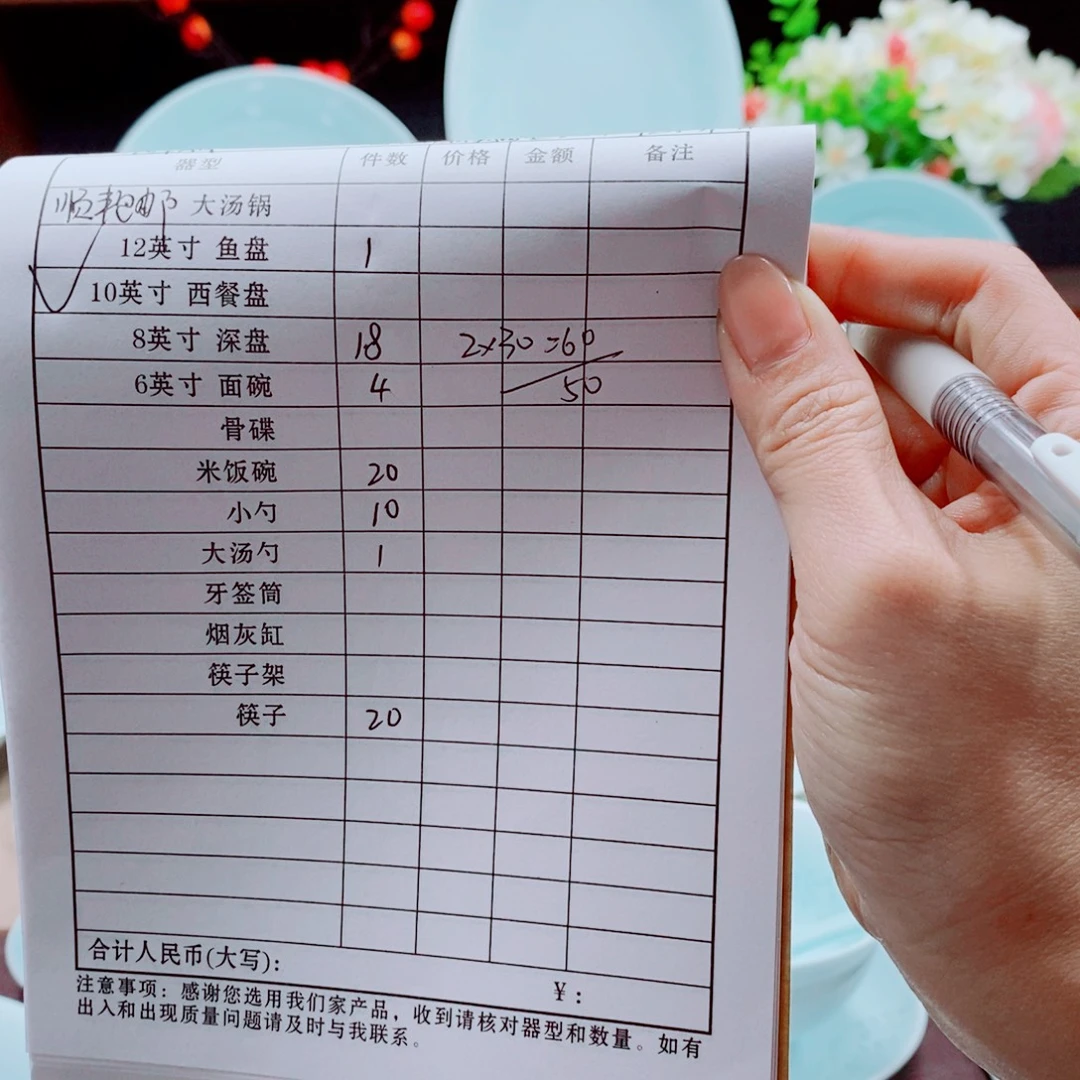 器型 件数 价格 金额 备注
顺丰包邮 大汤锅
12英寸 鱼盘 1
10英寸 西餐盘
8英寸 深盘 18 2×30=60
6英寸 面碗 4 50
骨碟
米饭碗 20
小勺 10
大汤勺 1
牙签筒
烟灰缸
筷子架
筷子 20
合计人民币(大写):
¥:
注意事项:感谢您选用我们家产品,收到请核对器型和数量。如有
出入和出现质量问题请及时与我联系。